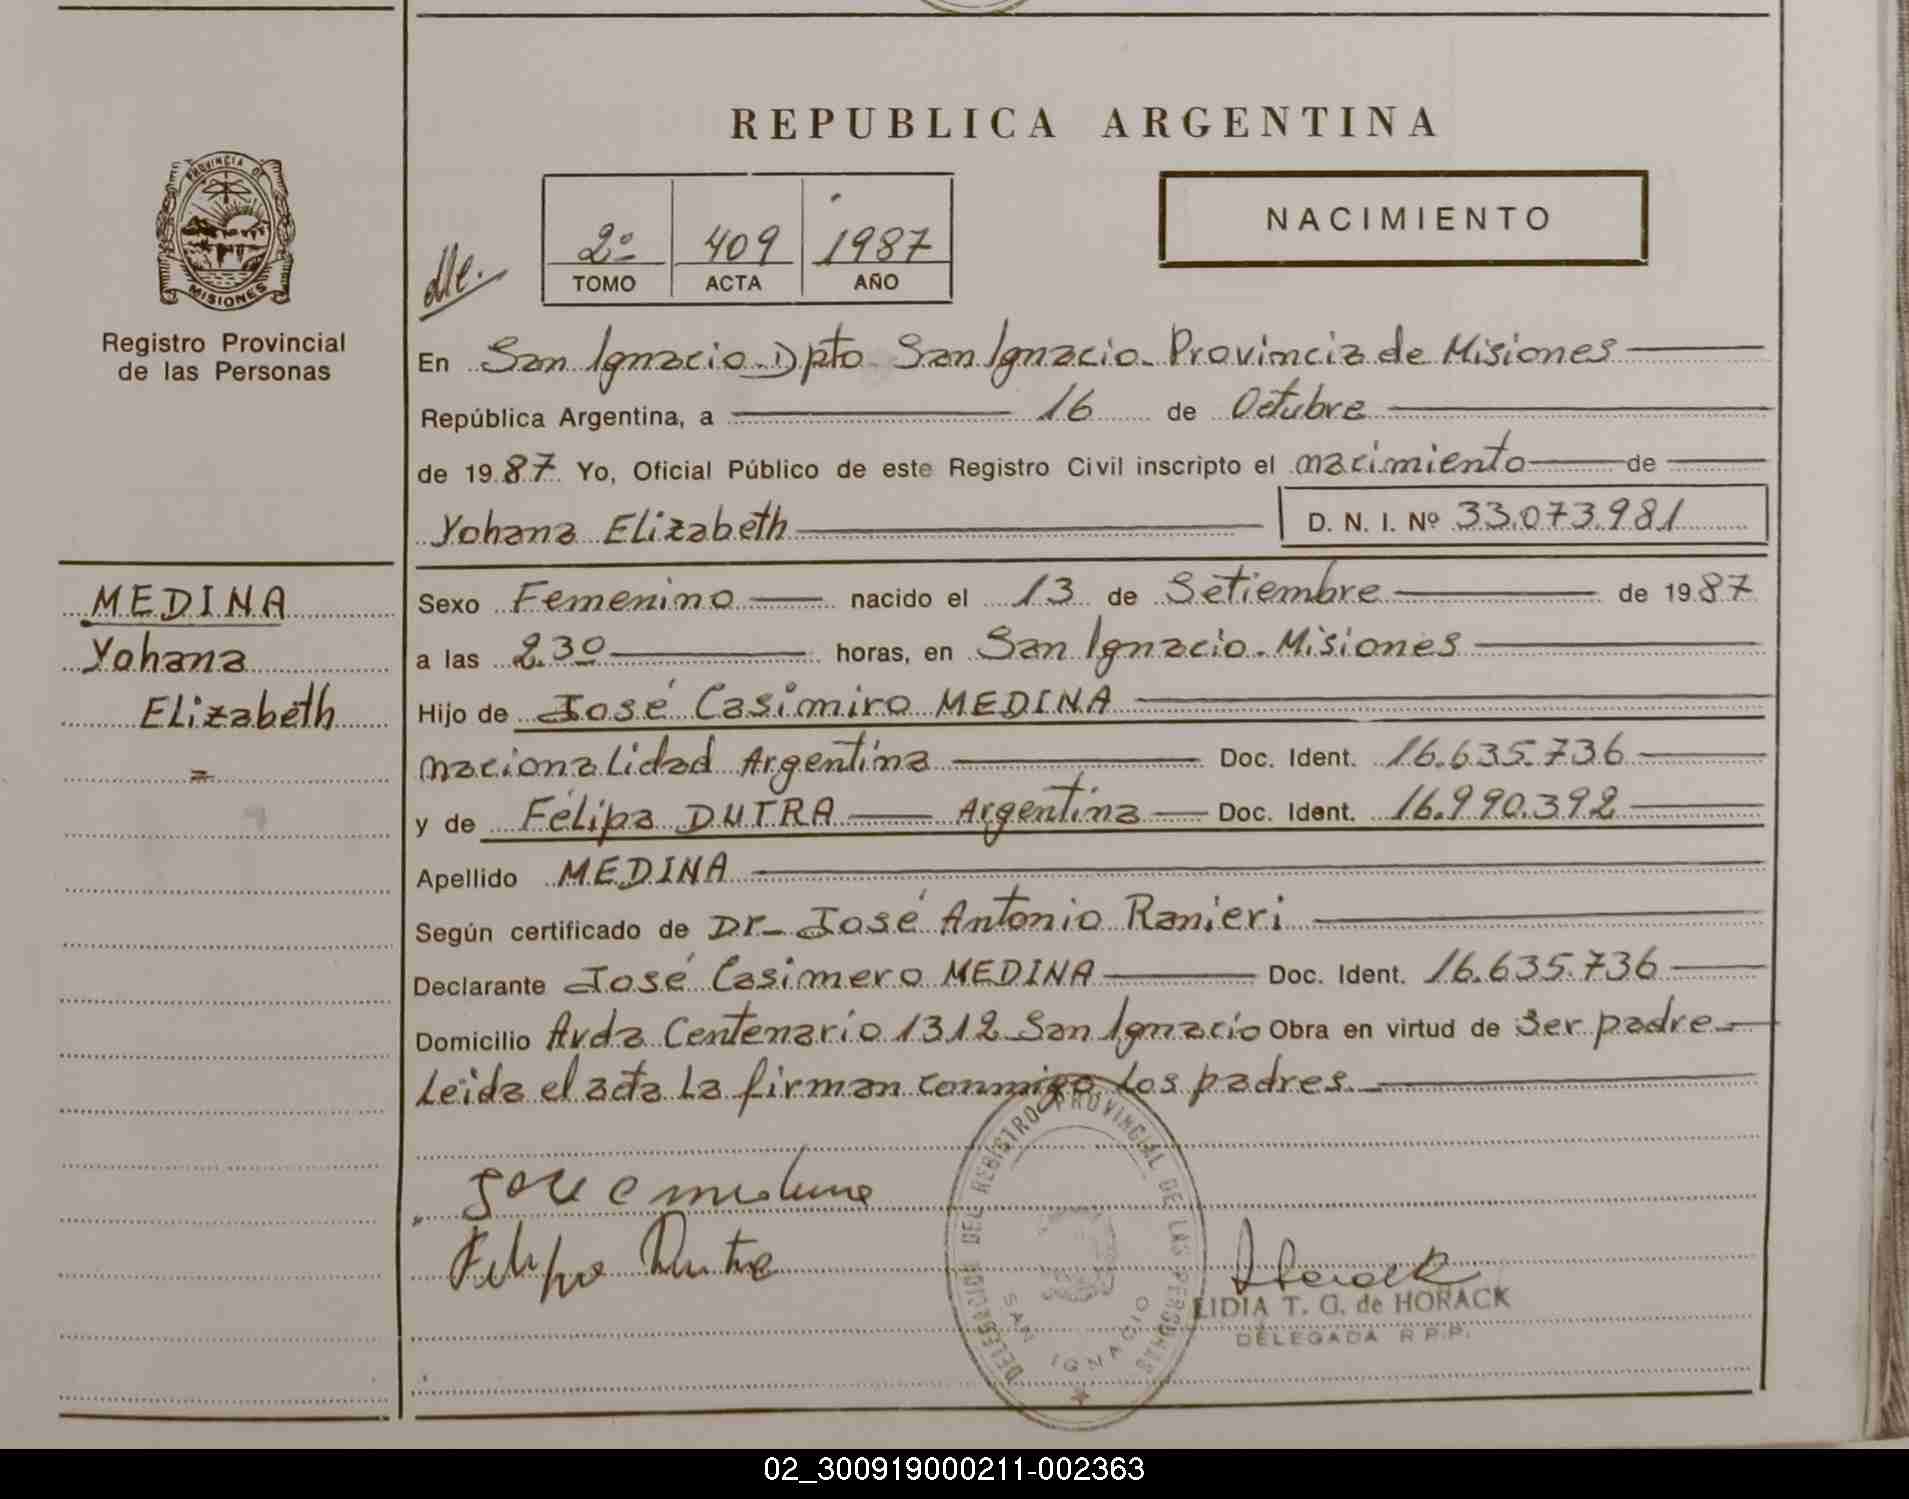 REPUBLICA ARGENTINA
PROVINCIA DE
MISIONES
Registro Provincial
de las Personas
NACIMIENTO
2º 409 1987
TOMO ACTA AÑO
En San Ignacio. Dpto San Ignacio. Provincia de Misiones
República Argentina, a 16 de Octubre
de 1987 Yo, Oficial Público de este Registro Civil inscripto el nacimiento de
Yohana Elizabeth D. N. I. Nº 33.073.981
MEDINA
Yohana
Elizabeth
Sexo Femenino nacido el 13 de Setiembre de 1987
a las 2.30 horas, en San Ignacio. Misiones
Hijo de José Casimiro MEDINA
nacionalidad Argentina Doc. Ident. 16.635.736
y de Felipa DUTRA Argentina Doc. Ident. 16.990.392
Apellido MEDINA
Según certificado de Dr. José Antonio Ranieri
Declarante José Casimero MEDINA Doc. Ident. 16.635.736
Domicilio Avda Centenario 1312 San Ignacio Obra en virtud de ser padre
Leida el acta la firman conmigo los padres.
Jose C medina
Felipa Dutra
Horack
LIDIA T. G. de HORACK
DELEGADA R.P.P.
DELEGACION DEL REGISTRO PROVINCIAL DE LAS PERSONAS
SAN IGNACIO
02_300919000211-002363